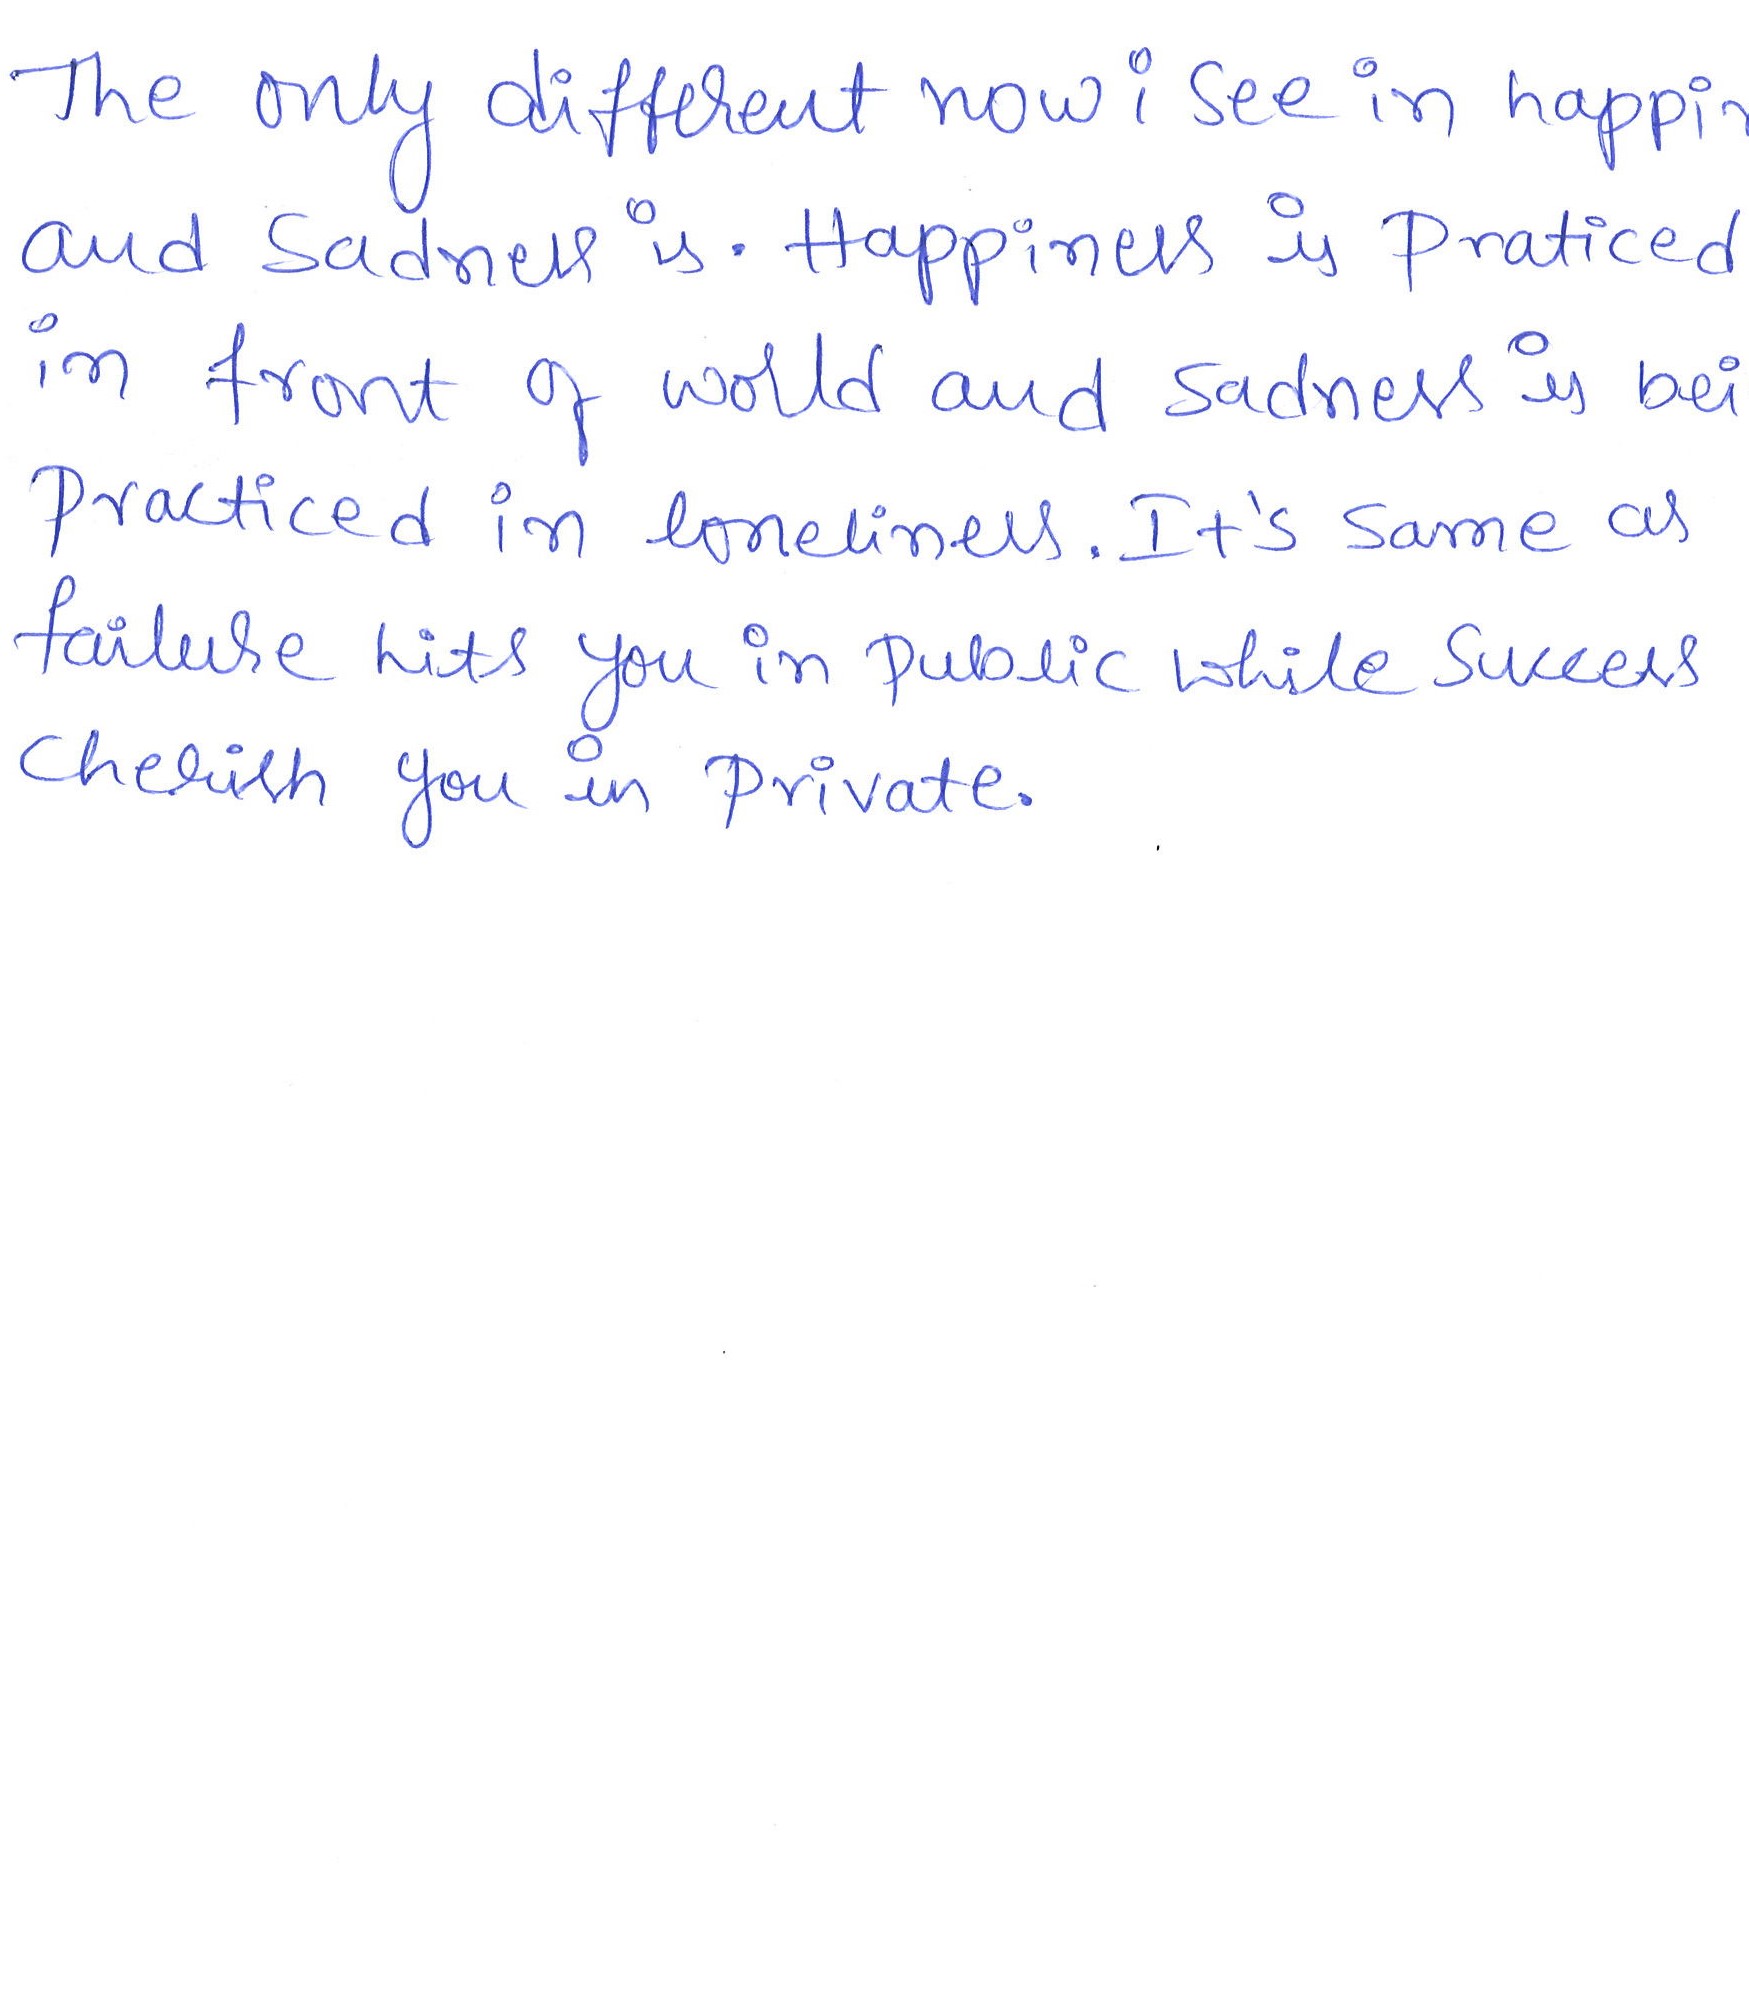 The only different now i see in happin
and Sadness is. Happiness is Praticed
in front of world and sadness is bei
Practiced in loneliness. It's same as
failure hits you in Public while Success
Cherish you in Private.